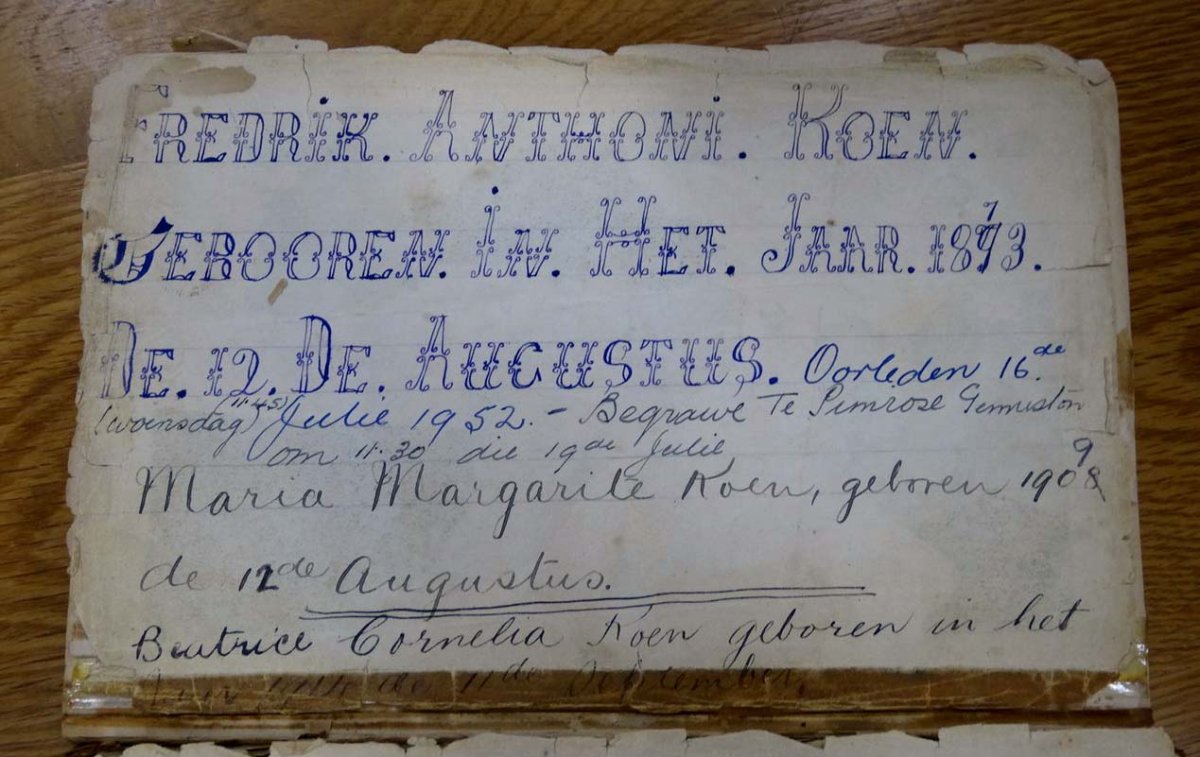 FREDRIK. ANTHONI. KOEN.
GEBOOREN. IN. HET. JAAR. 1873.
DE. 12. DE. AUGUSTUS. Oorleden 16.de
(woensdag 11.45) Julie 1952. - Begrawe Te Pimrose Germiston
om 11.30 die 19de Julie
Maria Margarite Koen, geboren 1909
de 12de Augustus.
Beatrice Cornelia Koen geboren in het
de 11de September.